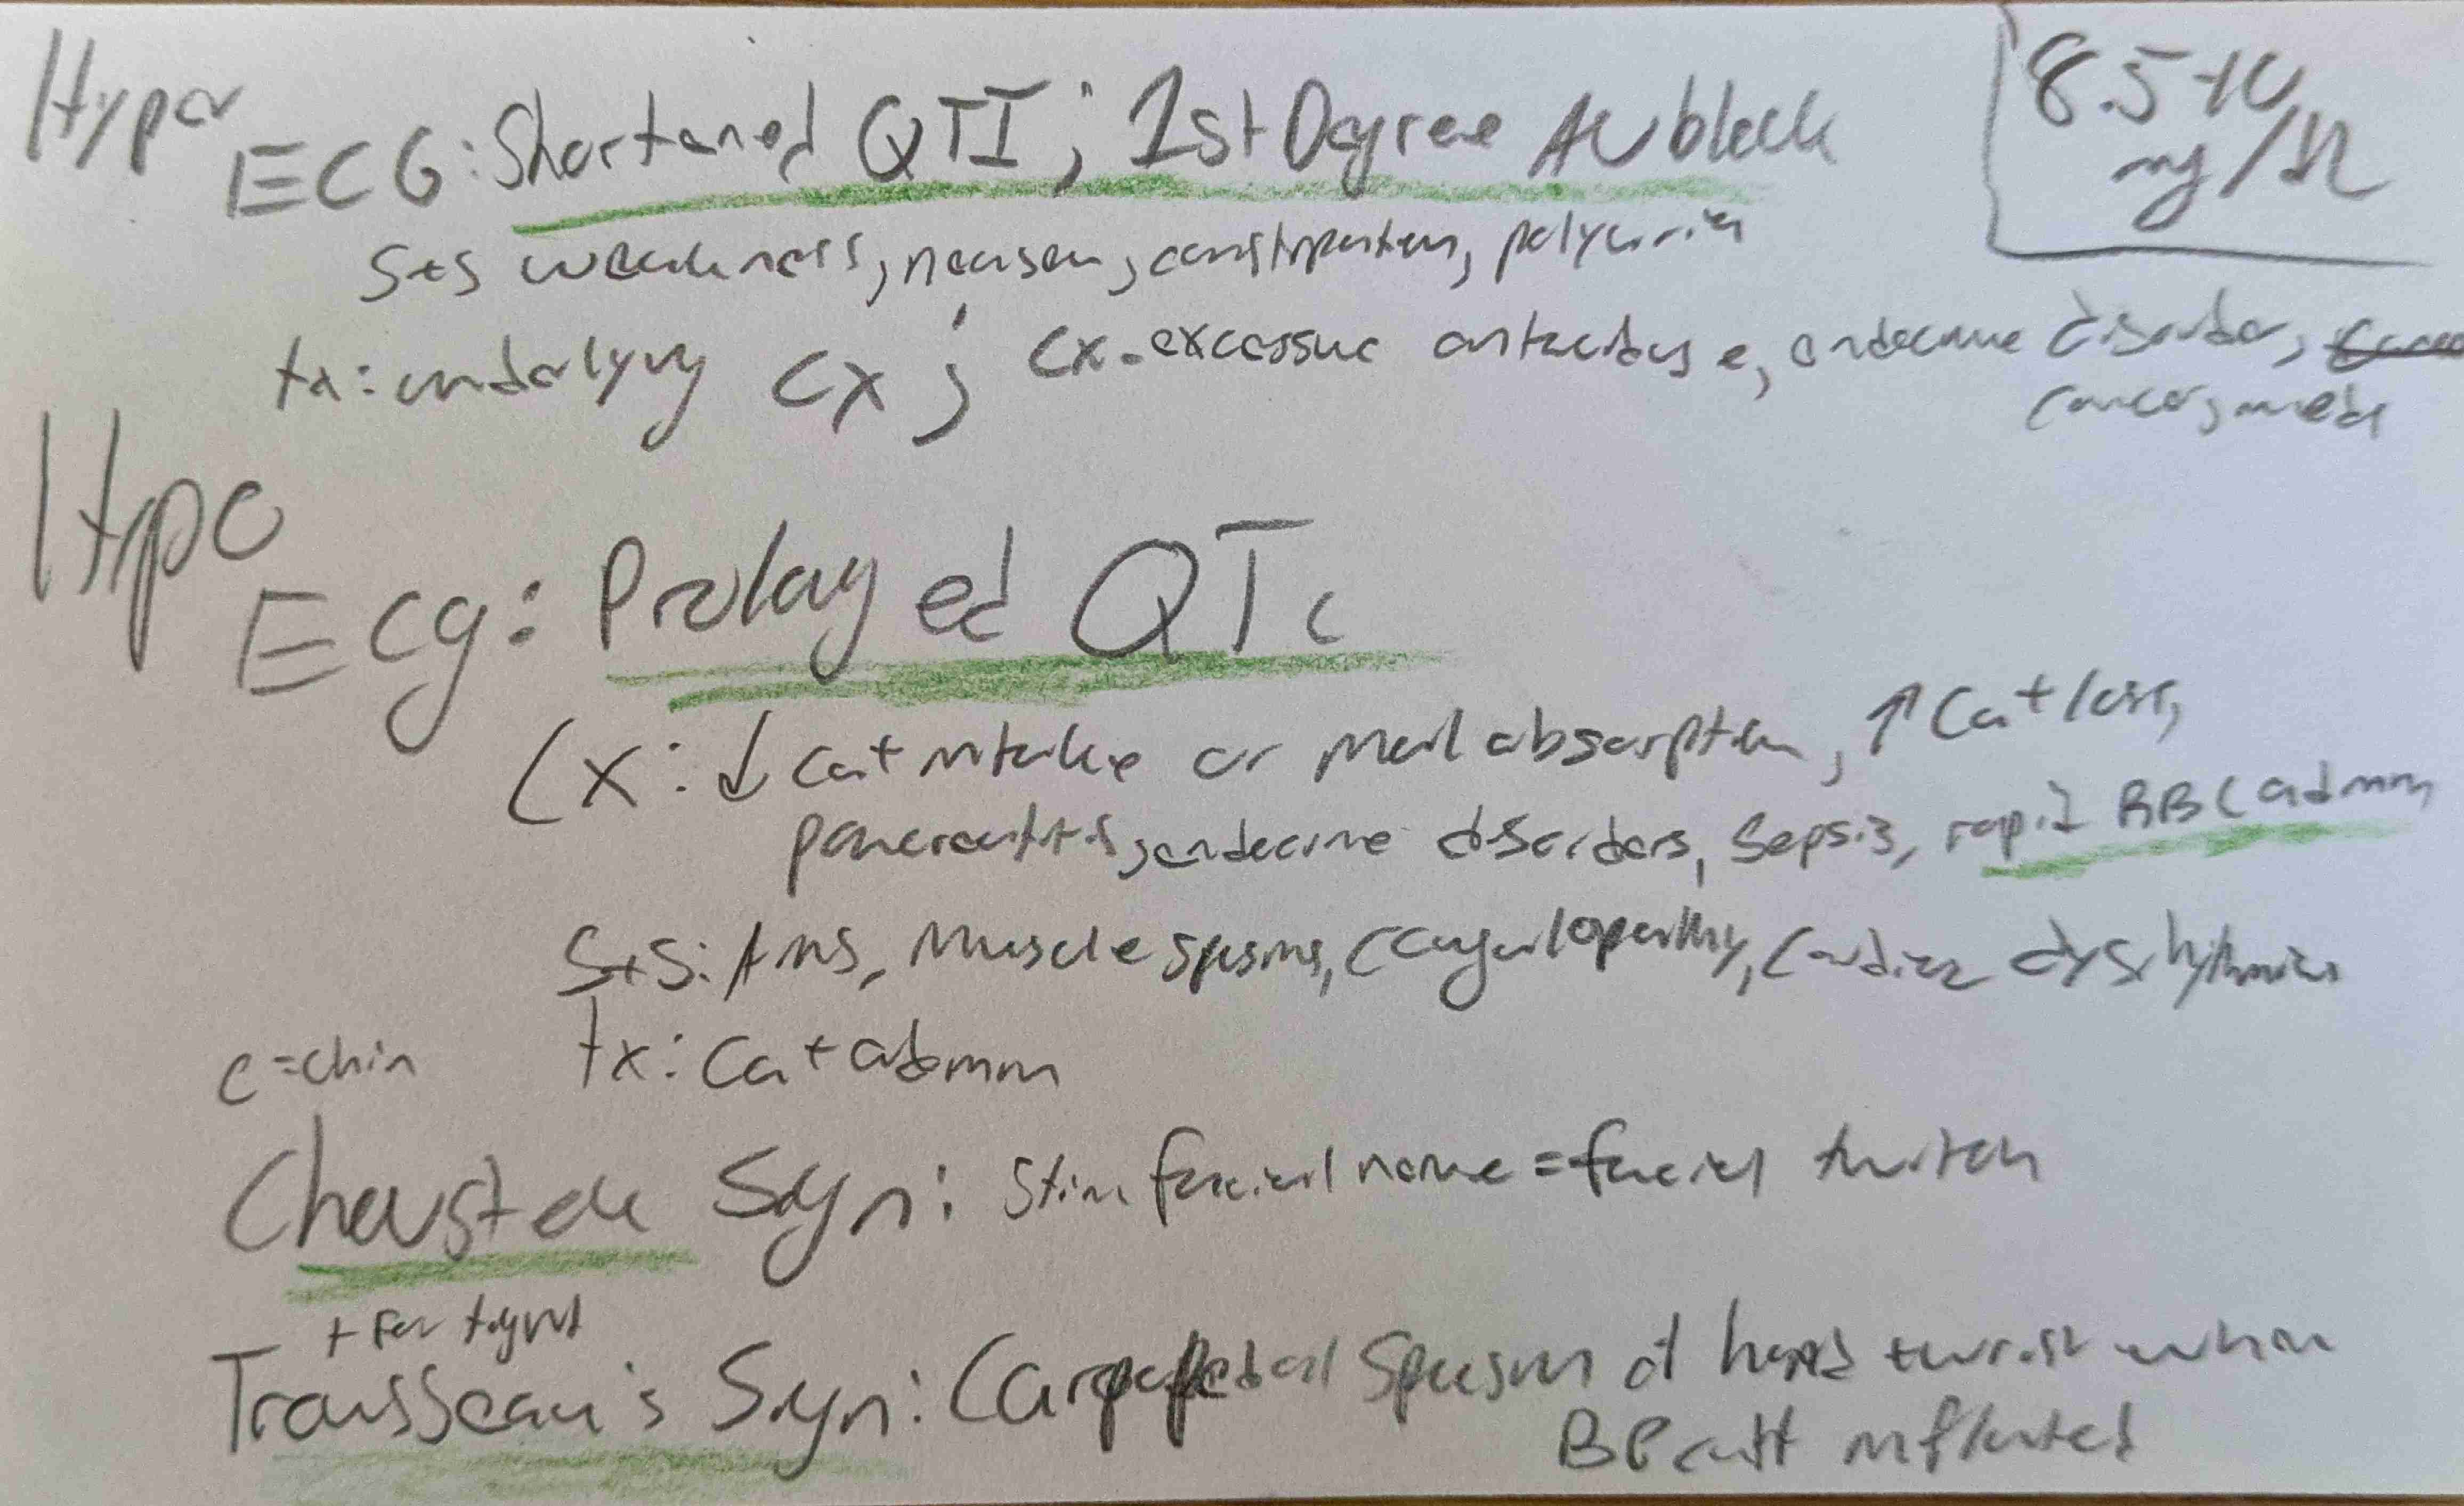 Hyper
8.5-10
mg/dl
ECG: Shortened QTI; 1st Degree AV block
S+S weakness, nausea, constipation, polyuria
tx: underlying Cx; Cx-excessive antacid use, endocrine disorder,
cancer, meds
Hypo
ECg: Prolonged QTc
Cx: ↓ Ca+ intake or malabsorption, ↑ Ca+ loss,
pancreatitis, endocrine disorders, Sepsis, rapid RBC admin
S+S: AMS, Muscle spasms, Coagulopathy, Cardiac dysrhythmias
c=chin
tx: Ca+ admin
Chevstek Sign: Stim facial nerve = facial twitch
Trousseau's Sign: Carpopedal Spasm of hand + wrist when
BP cuff inflated